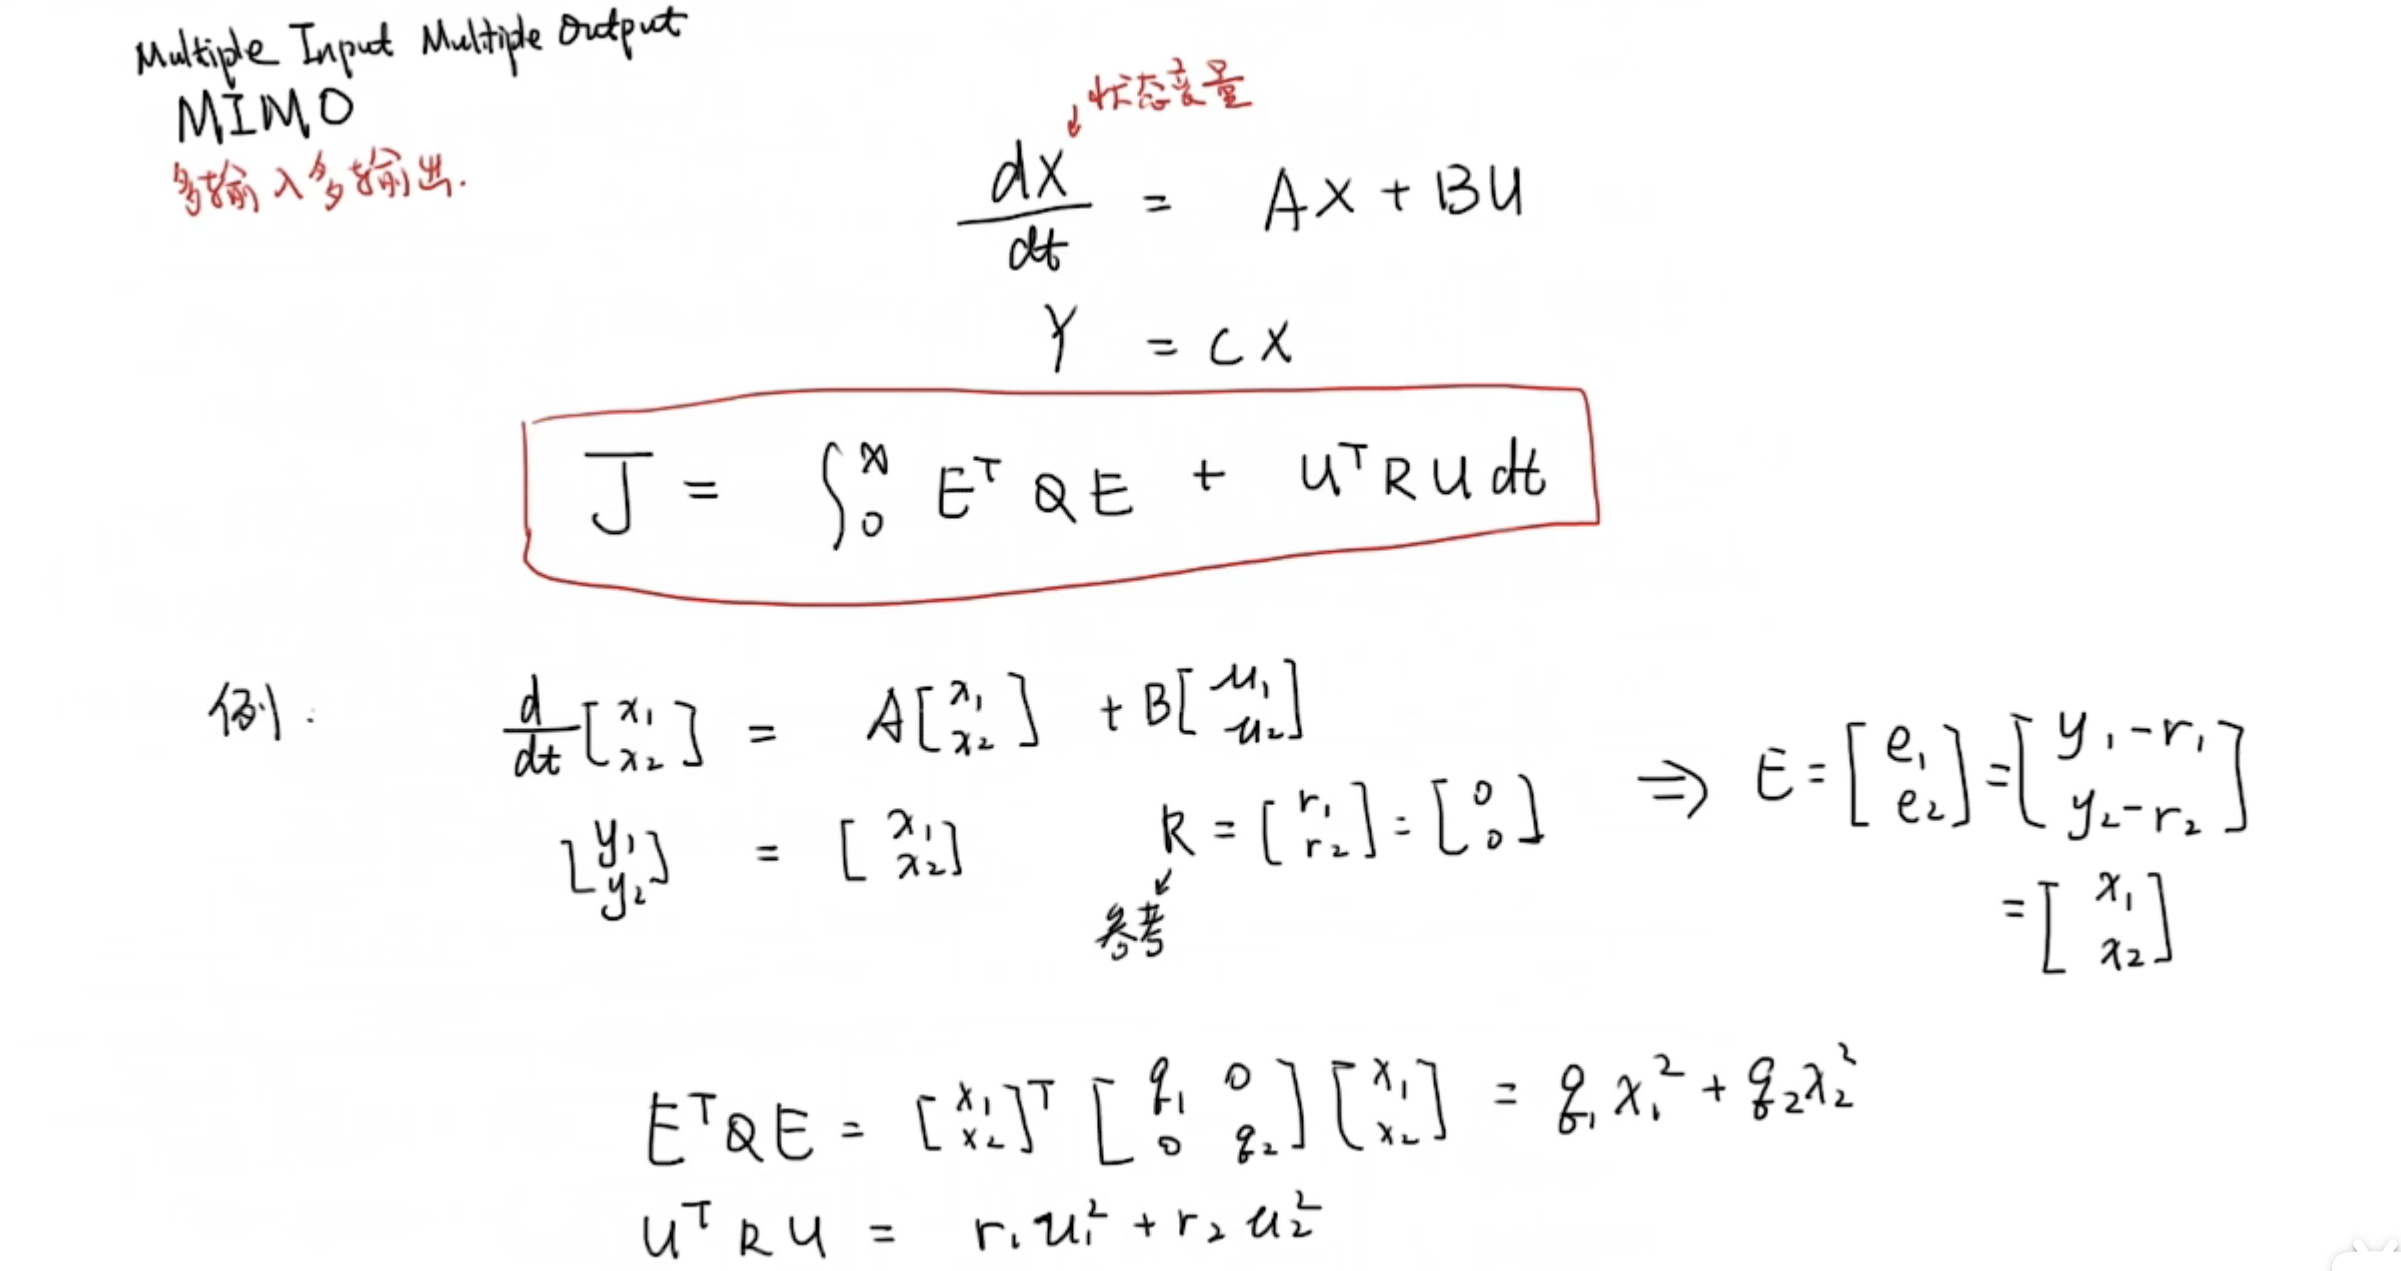 Multiple Input Multiple Output
MIMO
多输入多输出.
状态变量
dX/dt = AX + BU
Y = CX
J = ∫₀^∞ Eᵀ Q E + Uᵀ R U dt
例:
d/dt [x₁ x₂] = A [x₁ x₂] + B [u₁ u₂]
[y₁ y₂] = [x₁ x₂]
R = [r₁ r₂] = [0 0]
参考
⇒ E = [e₁ e₂] = [y₁-r₁ y₂-r₂]
= [x₁ x₂]
EᵀQE = [x₁ x₂]ᵀ [q₁ 0 0 q₂] [x₁ x₂] = q₁x₁² + q₂x₂²
Uᵀ R U = r₁u₁² + r₂u₂²